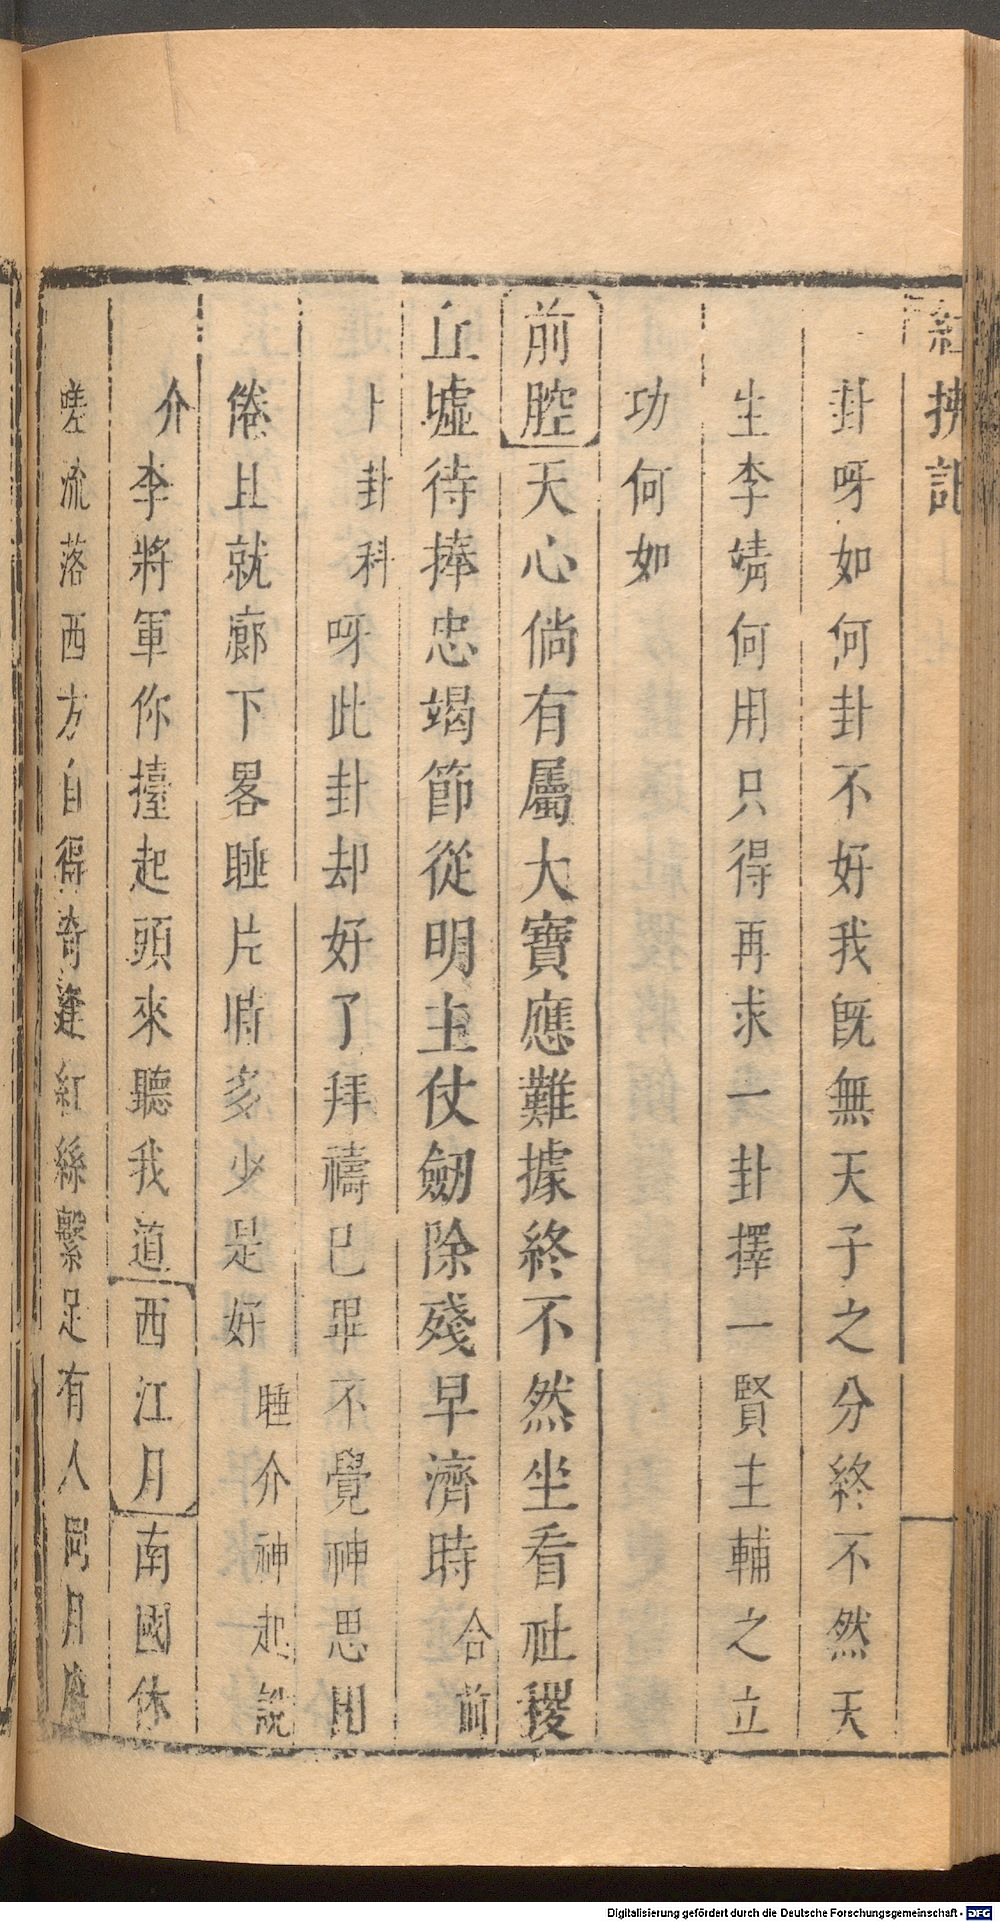 紅拂記
卦呀如何卦不好我既無天子之分終不然天
生李靖何用只得再求一卦擇一賢主輔之立
功何如
前腔天心倘有屬大寶應難據終不然坐看社稷
丘墟待捧忠竭節從明主仗劒除殘早濟時合前
卜卦科呀此卦却好了拜禱已畢不覺神思困
倦且就廊下畧睡片時多少是好睡介神起說
介李將軍你擡起頭來聽我道西江月南國休
嗟流落西方自得奇逢紅絲繫足有人同月府
Digitalisierung gefördert durch die Deutsche Forschungsgemeinschaft - DFG